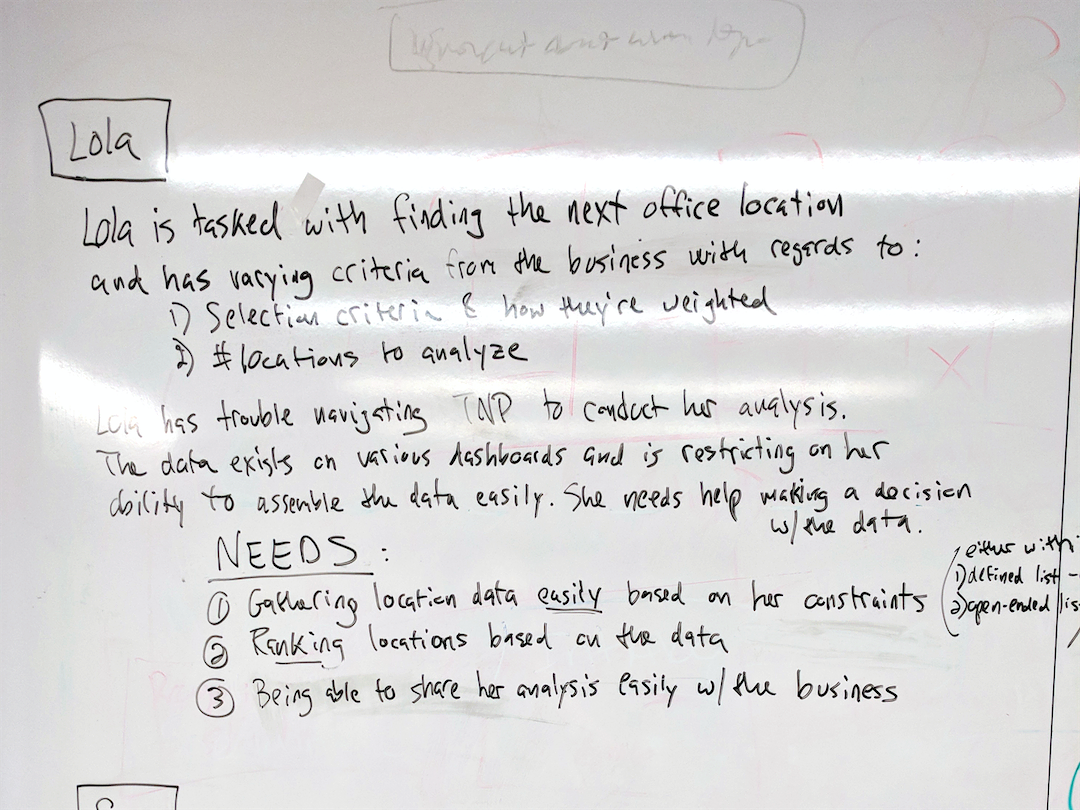 Lola
Lola is tasked with finding the next office location
and has varying criteria from the business with regards to:
1) Selection criteria & how they're weighted
2) # locations to analyze
Lola has trouble navigating TNP to conduct her analysis.
The data exists on various dashboards and is restricting on her
ability to assemble the data easily. She needs help making a decision
w/ the data.
NEEDS:
① Gathering location data easily based on her constraints
either with
1) defined list -
2) open-ended lis
② Ranking locations based on the data
③ Being able to share her analysis easily w/ the business